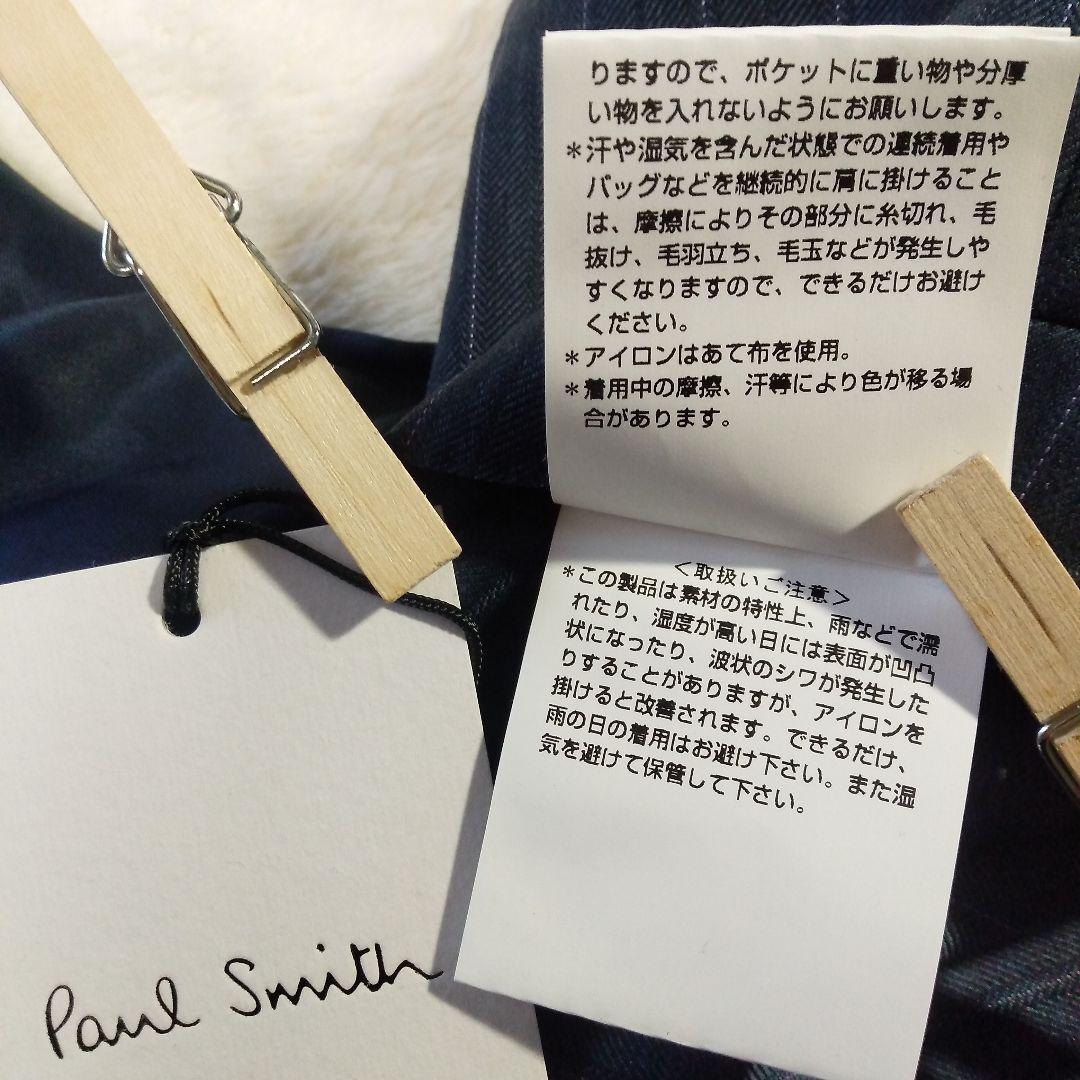 りますので、ポケットに重い物や分厚
い物を入れないようにお願いします。
*汗や湿気を含んだ状態での連続着用や
バッグなどを継続的に肩に掛けること
は、摩擦によりその部分に糸切れ、毛
抜け、毛羽立ち、毛玉などが発生しや
すくなりますので、できるだけお避け
ください。
*アイロンはあて布を使用。
*着用中の摩擦、汗等により色が移る場
合があります。
<取扱いご注意>
*この製品は素材の特性上、雨などで濡
れたり、湿度が高い日には表面が凹凸
状になったり、波状のシワが発生した
りすることがありますが、アイロンを
掛けると改善されます。できるだけ、
雨の日の着用はお避け下さい。また湿
気を避けて保管して下さい。
Paul Smith